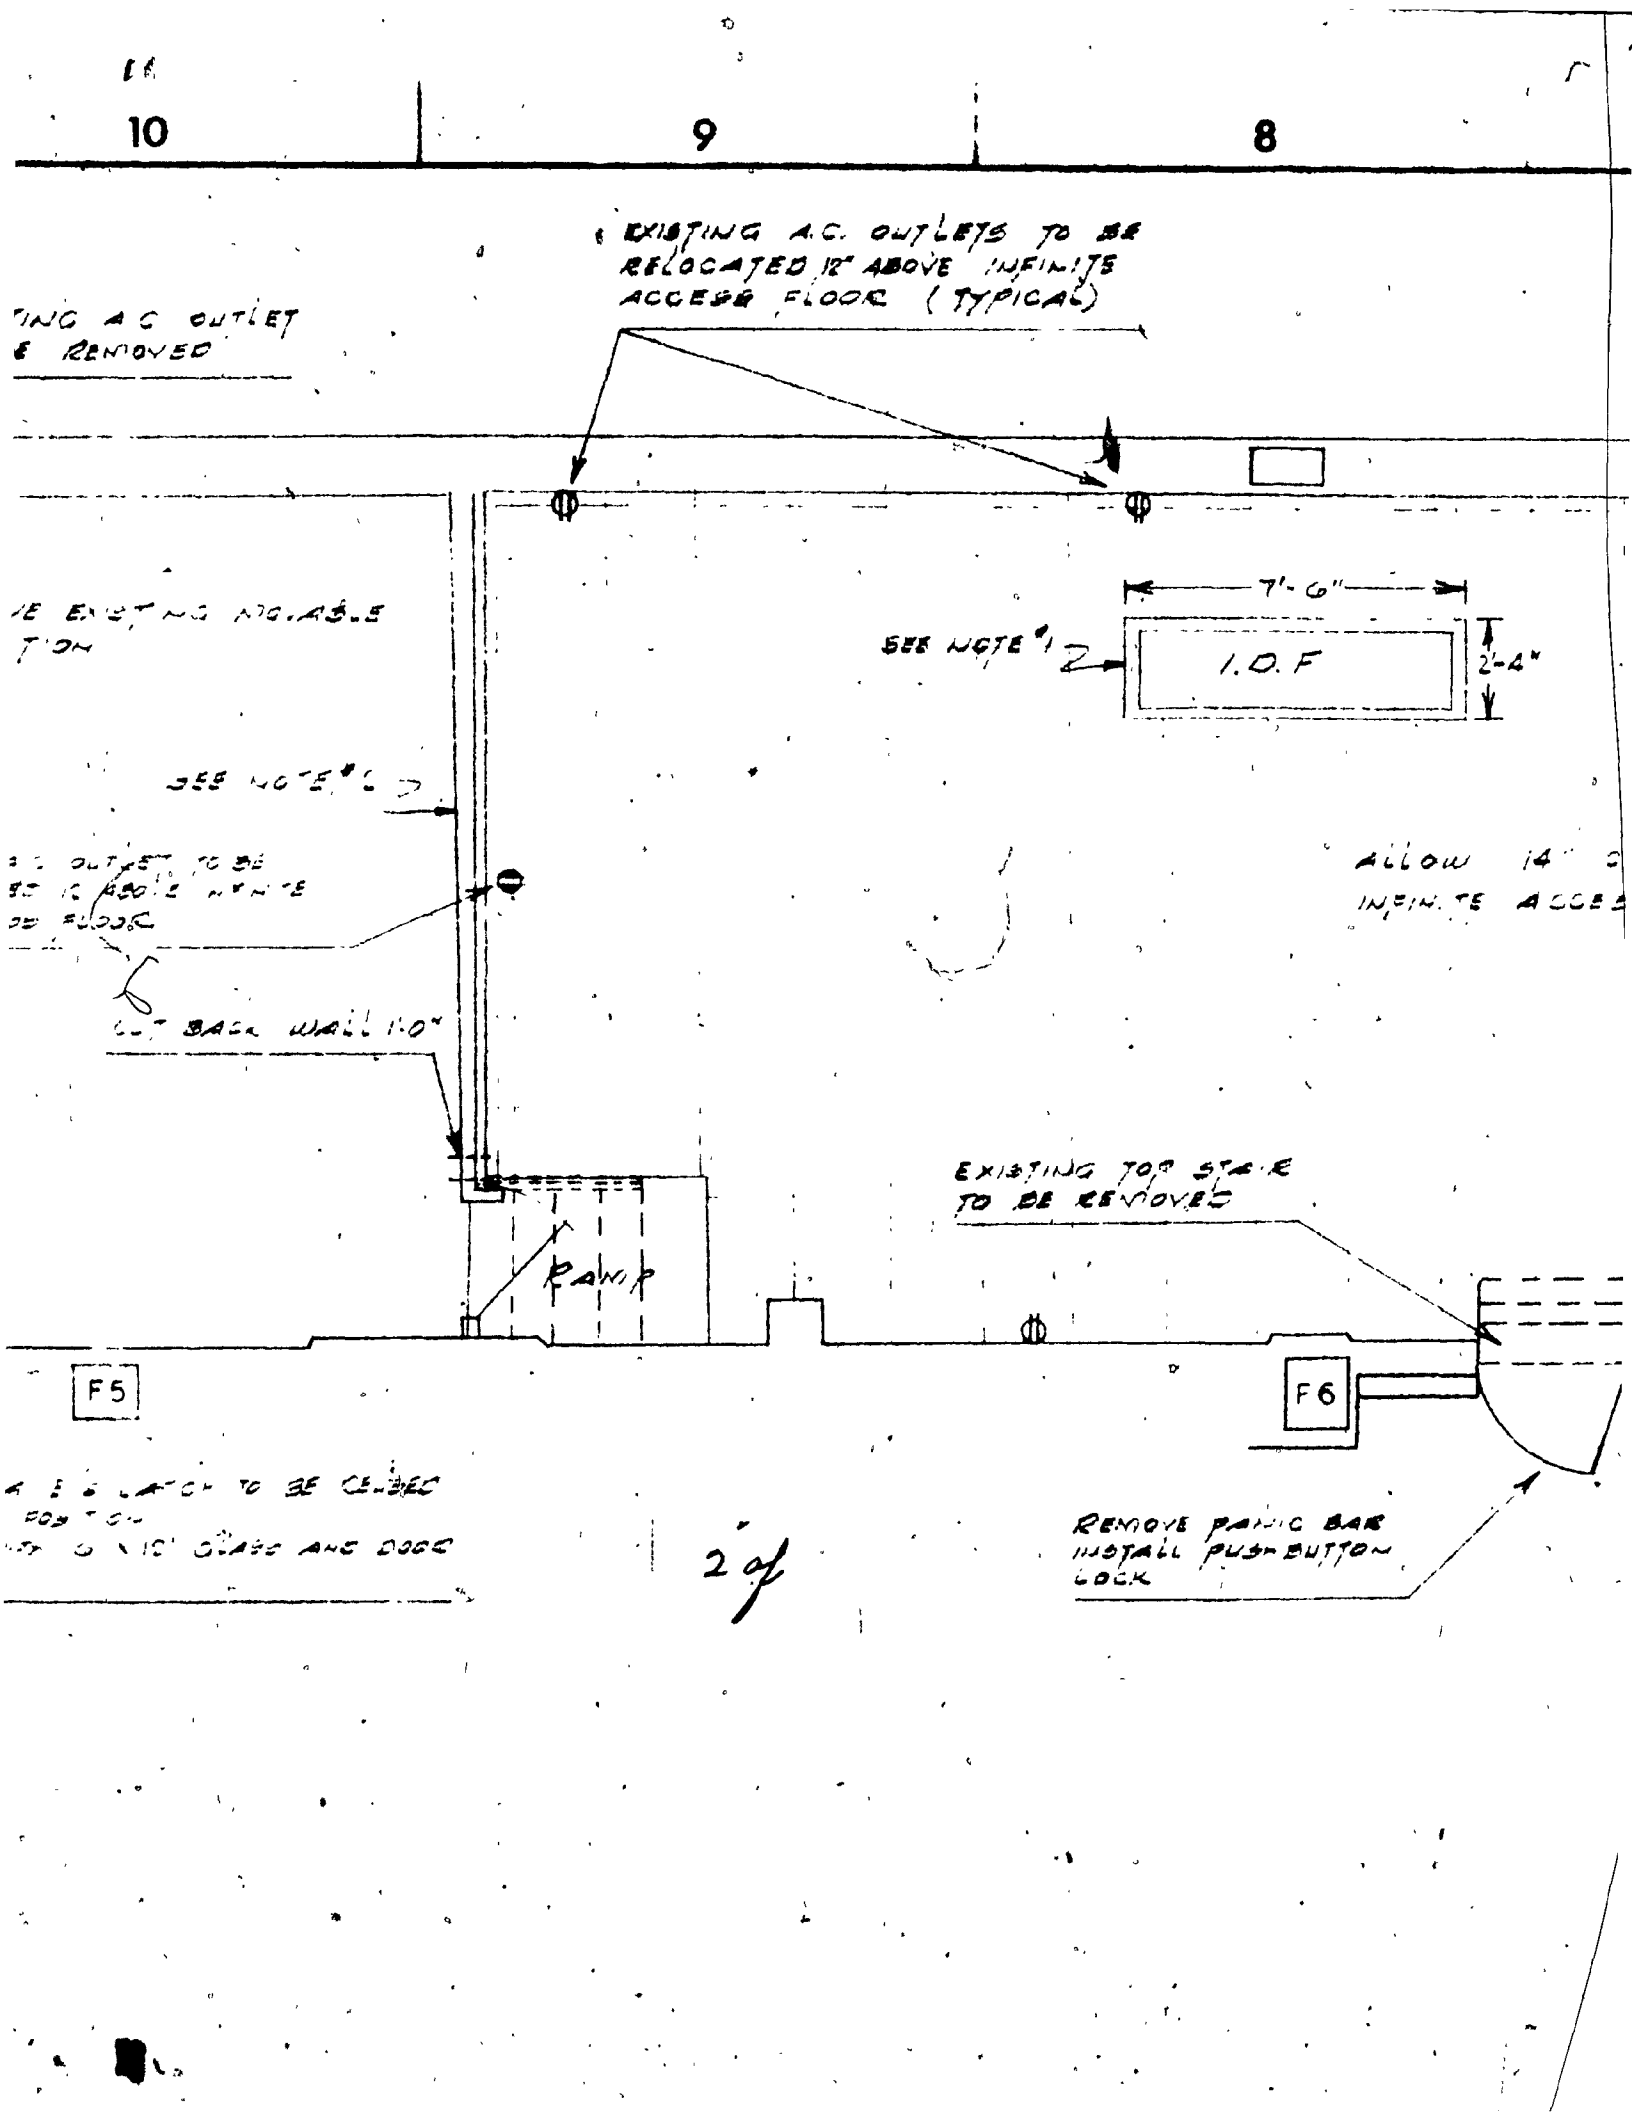 10
9
8
EXISTING A.C. OUTLETS TO BE
RELOCATED 12" ABOVE INFINITE
ACCESS FLOOR (TYPICAL)
TING A C OUTLET
E REMOVED
7'-6"
VE EXISTING MOVABLE
TION
SEE NOTE #1
I.D.F
2'-4"
SEE NOTE #
A C OUTLET TO BE
ABOVE INFINITE
FLOOR
ALLOW 14"
INFINITE ACCES
CUT BACK WALL 1'-0"
EXISTING TOP STAIR
TO BE REMOVED
RAMP
F5
F6
LATCH TO BE
POSITION
GLASS AND DOOR
2 of
REMOVE PANIC BAR
INSTALL PUSHBUTTON
LOCK